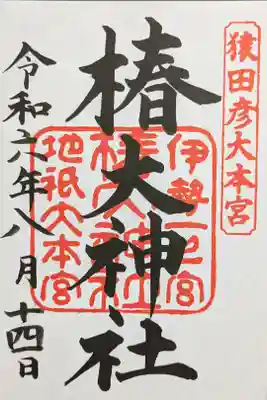 猿田彦大本宮
伊勢一之宮
椿大神社
地祇大本宮
椿大神社
令和六年八月十四日